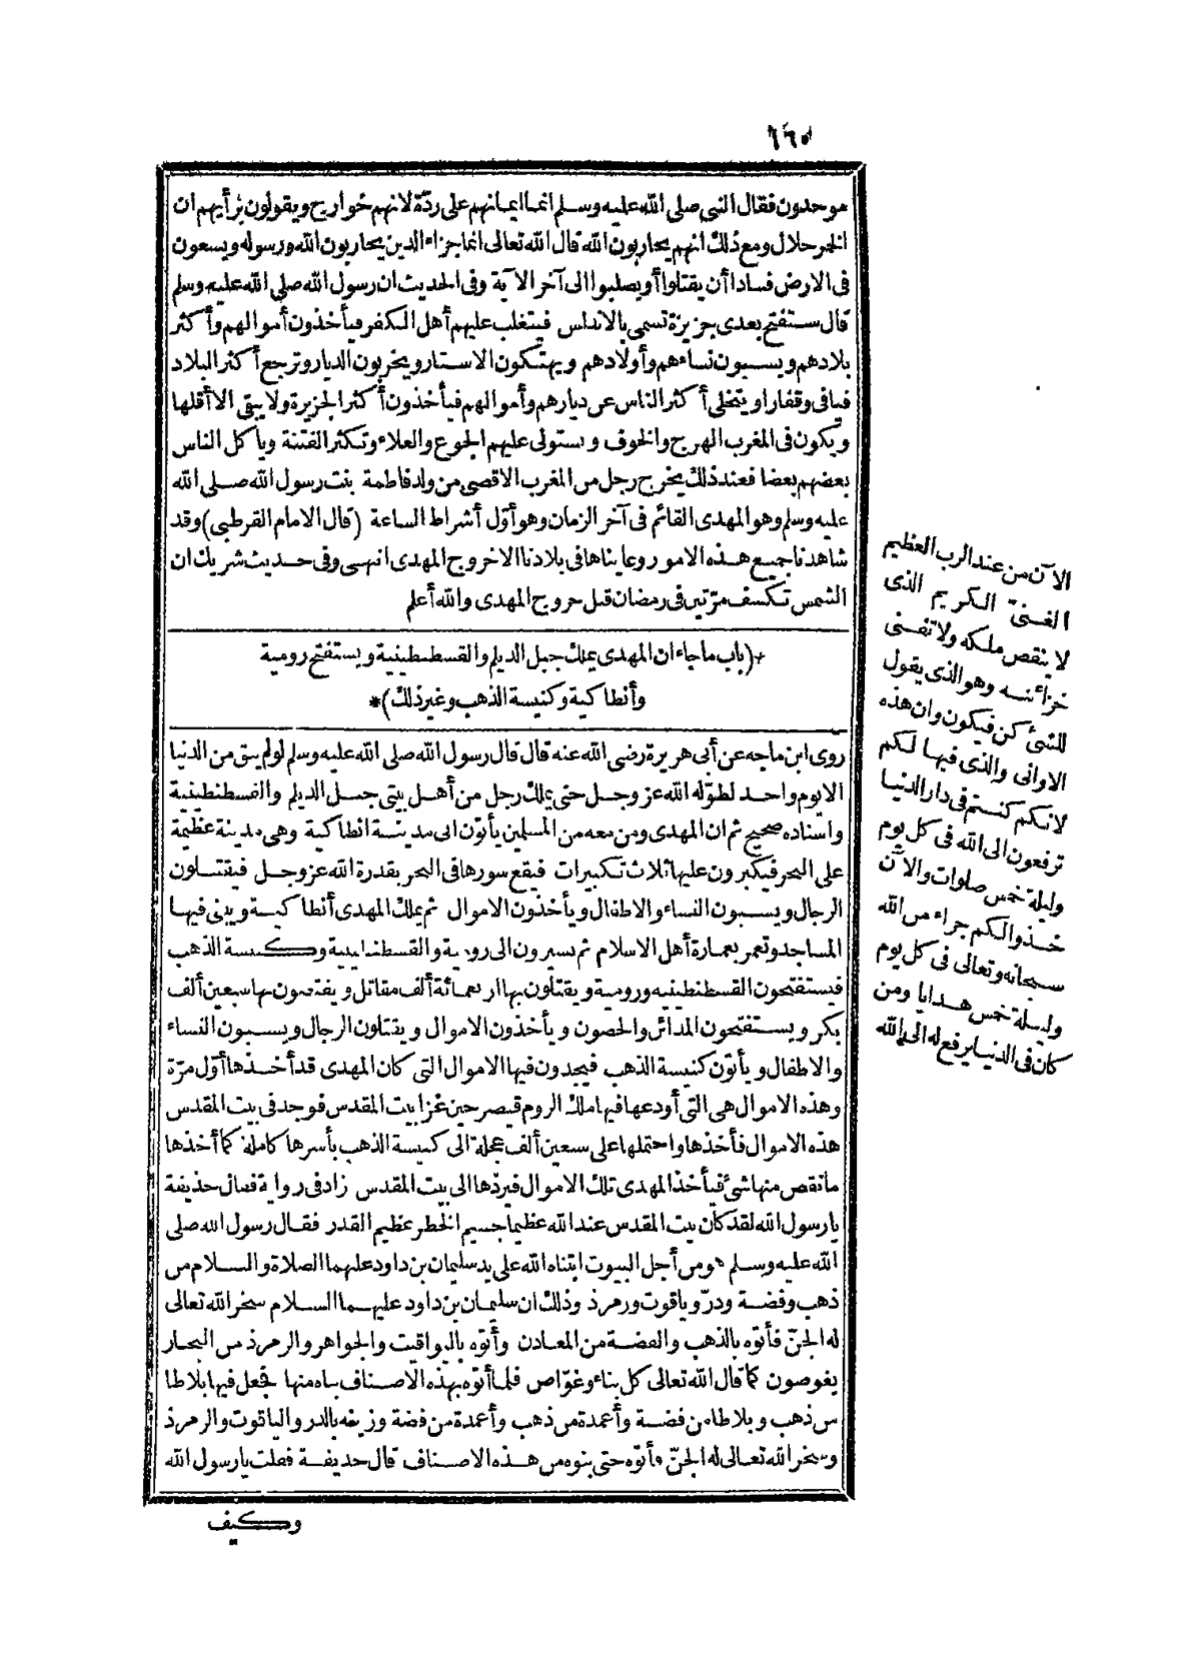 ١٦٥
موحدون فقال النبي صلى الله عليه وسلم انما ايمانهم على ردة لانهم خوارج ويقولون برأيهم ان
الخمر حلال ومع ذلك انهم يحاربون الله قال الله تعالى انما جزاء الذين يحاربون الله ورسوله ويسعون
فى الارض فسادا أن يقتلوا أو يصلبوا الى آخر الآية وفى الحديث ان رسول الله صلى الله عليه وسلم
قال ستفتح بعدى جزيرة تسمى بالاندلس فيتغلب عليهم أهل الكفر فيأخذون أموالهم وأكثر
بلادهم ويسبون نساءهم وأولادهم ويهتكون الاستار ويخربون الديار وترجع أكثر البلاد
فيافى وقفارا ويتخلى أكثر الناس عن ديارهم وأموالهم فيأخذون أكثر الجزيرة ولا يبقى الا أقلها
ويكون فى المغرب الهرج والخوف ويستولى عليهم الجوع والغلاء وتكثر الفتنة ويأكل الناس
بعضهم بعضا فعند ذلك يخرج رجل من المغرب الاقصى من ولد فاطمة بنت رسول الله صلى الله
عليه وسلم وهو المهدى القائم فى آخر الزمان وهو أوّل أشراط الساعة (قال الامام القرطبى) وقد
شاهدنا جميع هذه الامور وعايناها فى بلادنا الا خروج المهدى انتهى وفى حديث شريك ان
الشمس تكسف مرّتين فى رمضان قبل خروج المهدى والله أعلم
*(باب ما جاء ان المهدى يملك جبل الديلم والقسطنطينية ويستفتح رومية
وأنطاكية وكنيسة الذهب وغير ذلك)*
روى ابن ماجه عن أبى هريرة رضى الله عنه قال قال رسول الله صلى الله عليه وسلم لو لم يبق من الدنيا
الا يوم واحد لطوّله الله عز وجل حتى يملك رجل من أهل بيتى جبل الديلم والقسطنطينية
واسناده صحيح ثم ان المهدى ومن معه من المسلمين يأتون الى مدينة انطاكية وهى مدينة عظيمة
على البحر فيكبرون عليها ثلاث تكبيرات فيقع سورها فى البحر بقدرة الله عز وجل فيقتلون
الرجال ويسبون النساء والاطفال ويأخذون الاموال ثم يملك المهدى أنطاكية ويبنى فيها
المساجد وتعمر بعمارة أهل الاسلام ثم يسيرون الى رومية والقسطنطينية وكنيسة الذهب
فيستفتحون القسطنطينيه ورومية ويقتلون بها اربعمائة ألف مقاتل ويفتضون بها سبعين ألف
بكر ويستفتحون المدائن والحصون ويأخذون الاموال ويقتلون الرجال ويسبون النساء
والاطفال ويأتون كنيسة الذهب فيجدون فيها الاموال التى كان المهدى قد أخذها أوّل مرّة
وهذه الاموال هى التى أودعها فيها ملك الروم قيصر حين غزا بيت المقدس فوجد فى بيت المقدس
هذه الاموال فأخذها واحتملها على سبعين ألف عجلة الى كنيسة الذهب بأسرها كاملة كما أخذها
ما نقص منها شئ فيأخذ المهدى تلك الاموال فيردّها الى بيت المقدس زاد فى رواية فقال حذيفة
يا رسول الله لقد كان بيت المقدس عند الله عظيما جسيم الخطر عظيم القدر فقال رسول الله صلى
الله عليه وسلم هو من أجل البيوت ابتناه الله على يد سليمان بن داود عليهما الصلاة والسلام من
ذهب وفضة ودرّ وياقوت وزمرذ وذلك ان سليمان بن داود عليهما السلام سخر الله تعالى
له الجنّ فأتوه بالذهب والفضة من المعادن وأتوه باليواقيت والجواهر والزمرذ من البحار
يغوصون كما قال الله تعالى كل بناء وغوّاص فلما أتوه بهذه الاصناف بناه منها فجعل فيها بلاطا
من ذهب وبلاطا من فضة وأعمدة من ذهب وأعمدة من فضة وزينه بالدر والياقوت والزمرذ
وسخر الله تعالى له الجنّ فأتوه حتى بنوه من هذه الاصناف قال حذيفة فقلت يا رسول الله
وكيف
الآن من عند الرب العظيم
الغنىّ الكريم الذى
لا ينقص ملكه ولا تفنى
خزائنه وهو الذى يقول
للشئ كن فيكون وان هذه
الاوانى والذى فيها لكم
لانكم كنتم فى دار الدنيا
ترفعون الى الله فى كل يوم
وليلة خمس صلوات والآن
خذوا لكم جزاء من الله
سبحانه وتعالى فى كل يوم
وليلة خمس هدايا ومن
كان فى الدنيا يرفع له الى الله